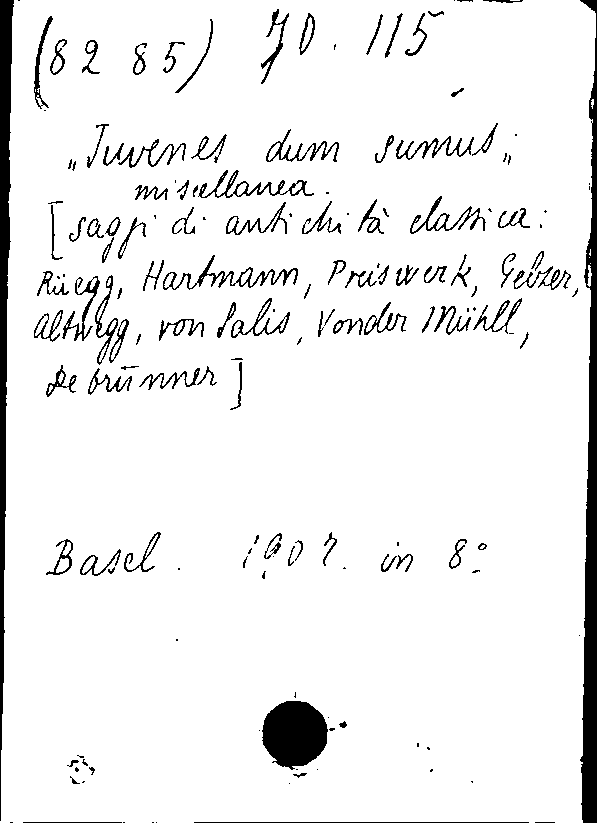 (82 85) 70. 115
„Juvenes dum sumus„
miscellanea.
[saggi di antichità classica:
Rüegg, Hartmann, Preiswerk, Gelzer,
Altwegg, von Salis, Vonder Mühll,
Debrunner]
Basel. 1907. in 8°